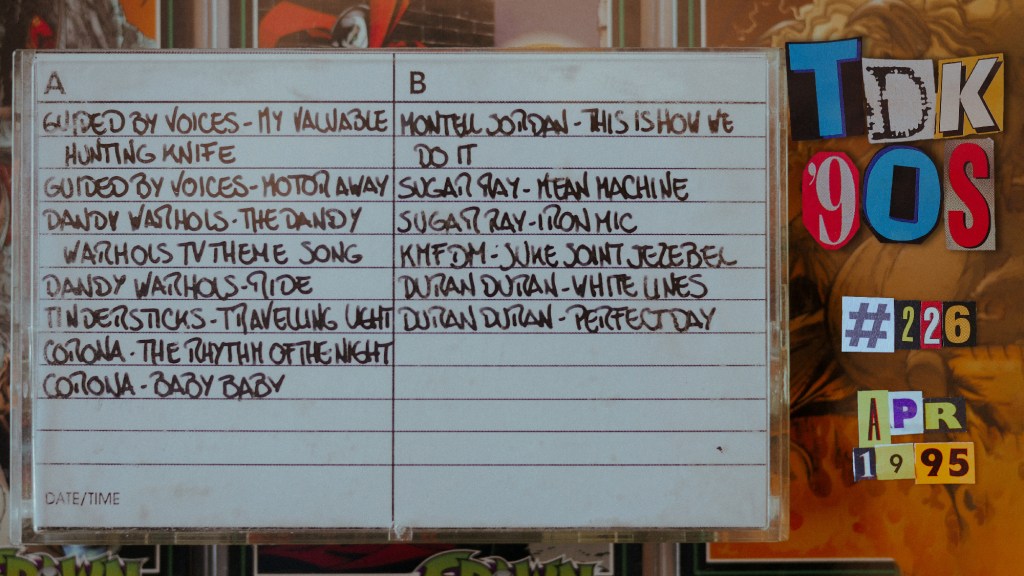 A
GUIDED BY VOICES - MY VALUABLE
HUNTING KNIFE
GUIDED BY VOICES - MOTOR AWAY
DANDY WARHOLS - THE DANDY
WARHOLS TV THEME SONG
DANDY WARHOLS - RIDE
TINDERSTICKS - TRAVELLING LIGHT
CORONA - THE RHYTHM OF THE NIGHT
CORONA - BABY BABY
DATE/TIME
B
MONTELL JORDAN - THIS IS HOW WE
DO IT
SUGAR RAY - MEAN MACHINE
SUGAR RAY - IRON MIC
KMFDM - JUKE JOINT JEZEBEL
DURAN DURAN - WHITE LINES
DURAN DURAN - PERFECT DAY
TDK
'90S
#226
APR
1995